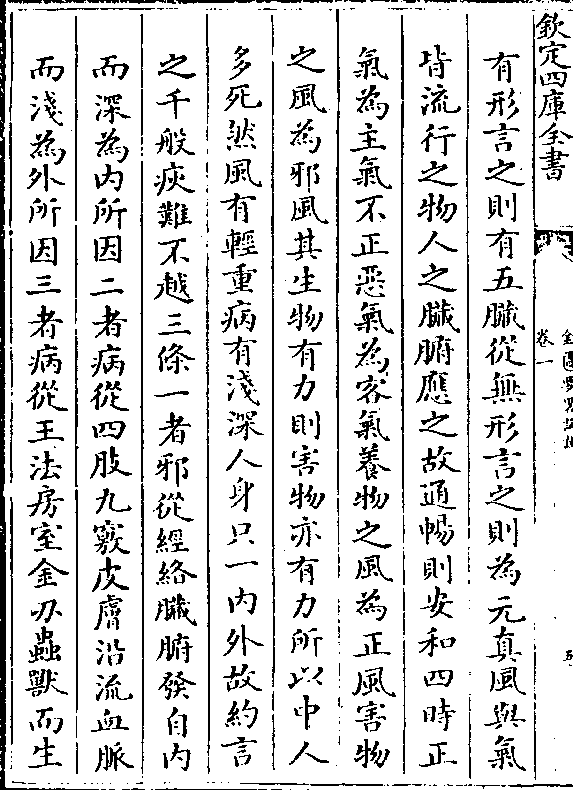 欽定四庫全書
卷一
五
有形言之則有五臟從無形言之則為元真風與氣
皆流行之物人之臟腑應之故通暢則安和四時正
氣為主氣不正惡氣為客氣養物之風為正風害物
之風為邪風其生物有力則害物亦有力所以中人
多死然風有輕重病有淺深人身只一內外故約言
之千般疢難不越三條一者邪從經絡臟腑發自內
而深為內所因二者病從四肢九竅皮膚沿流血脈
而淺為外所因三者病從王法房室金刃蟲獸而生